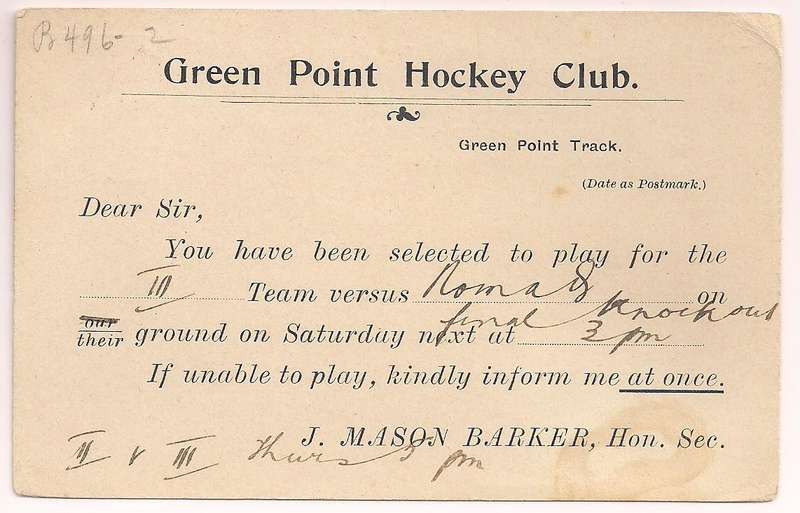 B496-2
Green Point Hockey Club.
Green Point Track.
(Date as Postmark.)
Dear Sir,
You have been selected to play for the
III Team versus Roma on
final knock out
our
their ground on Saturday next at 3 pm
If unable to play, kindly inform me at once.
J. MASON BARKER, Hon. Sec.
II v III Thurs 5 pm